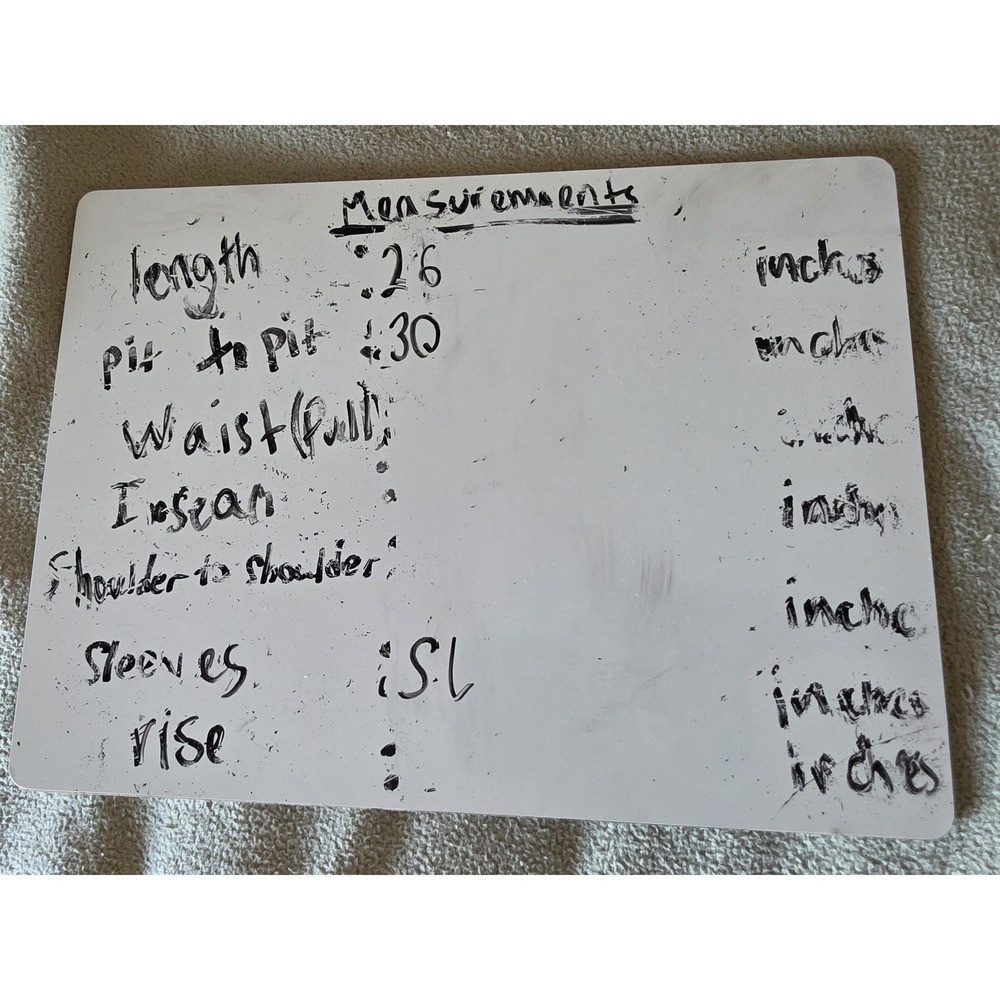 Measurements
length : 26 inches
pit to pit : 30 inches
Waist (full) : inches
Inseam : inches
Shoulder to shoulder : inches
Sleeves : SL inches
rise : inches